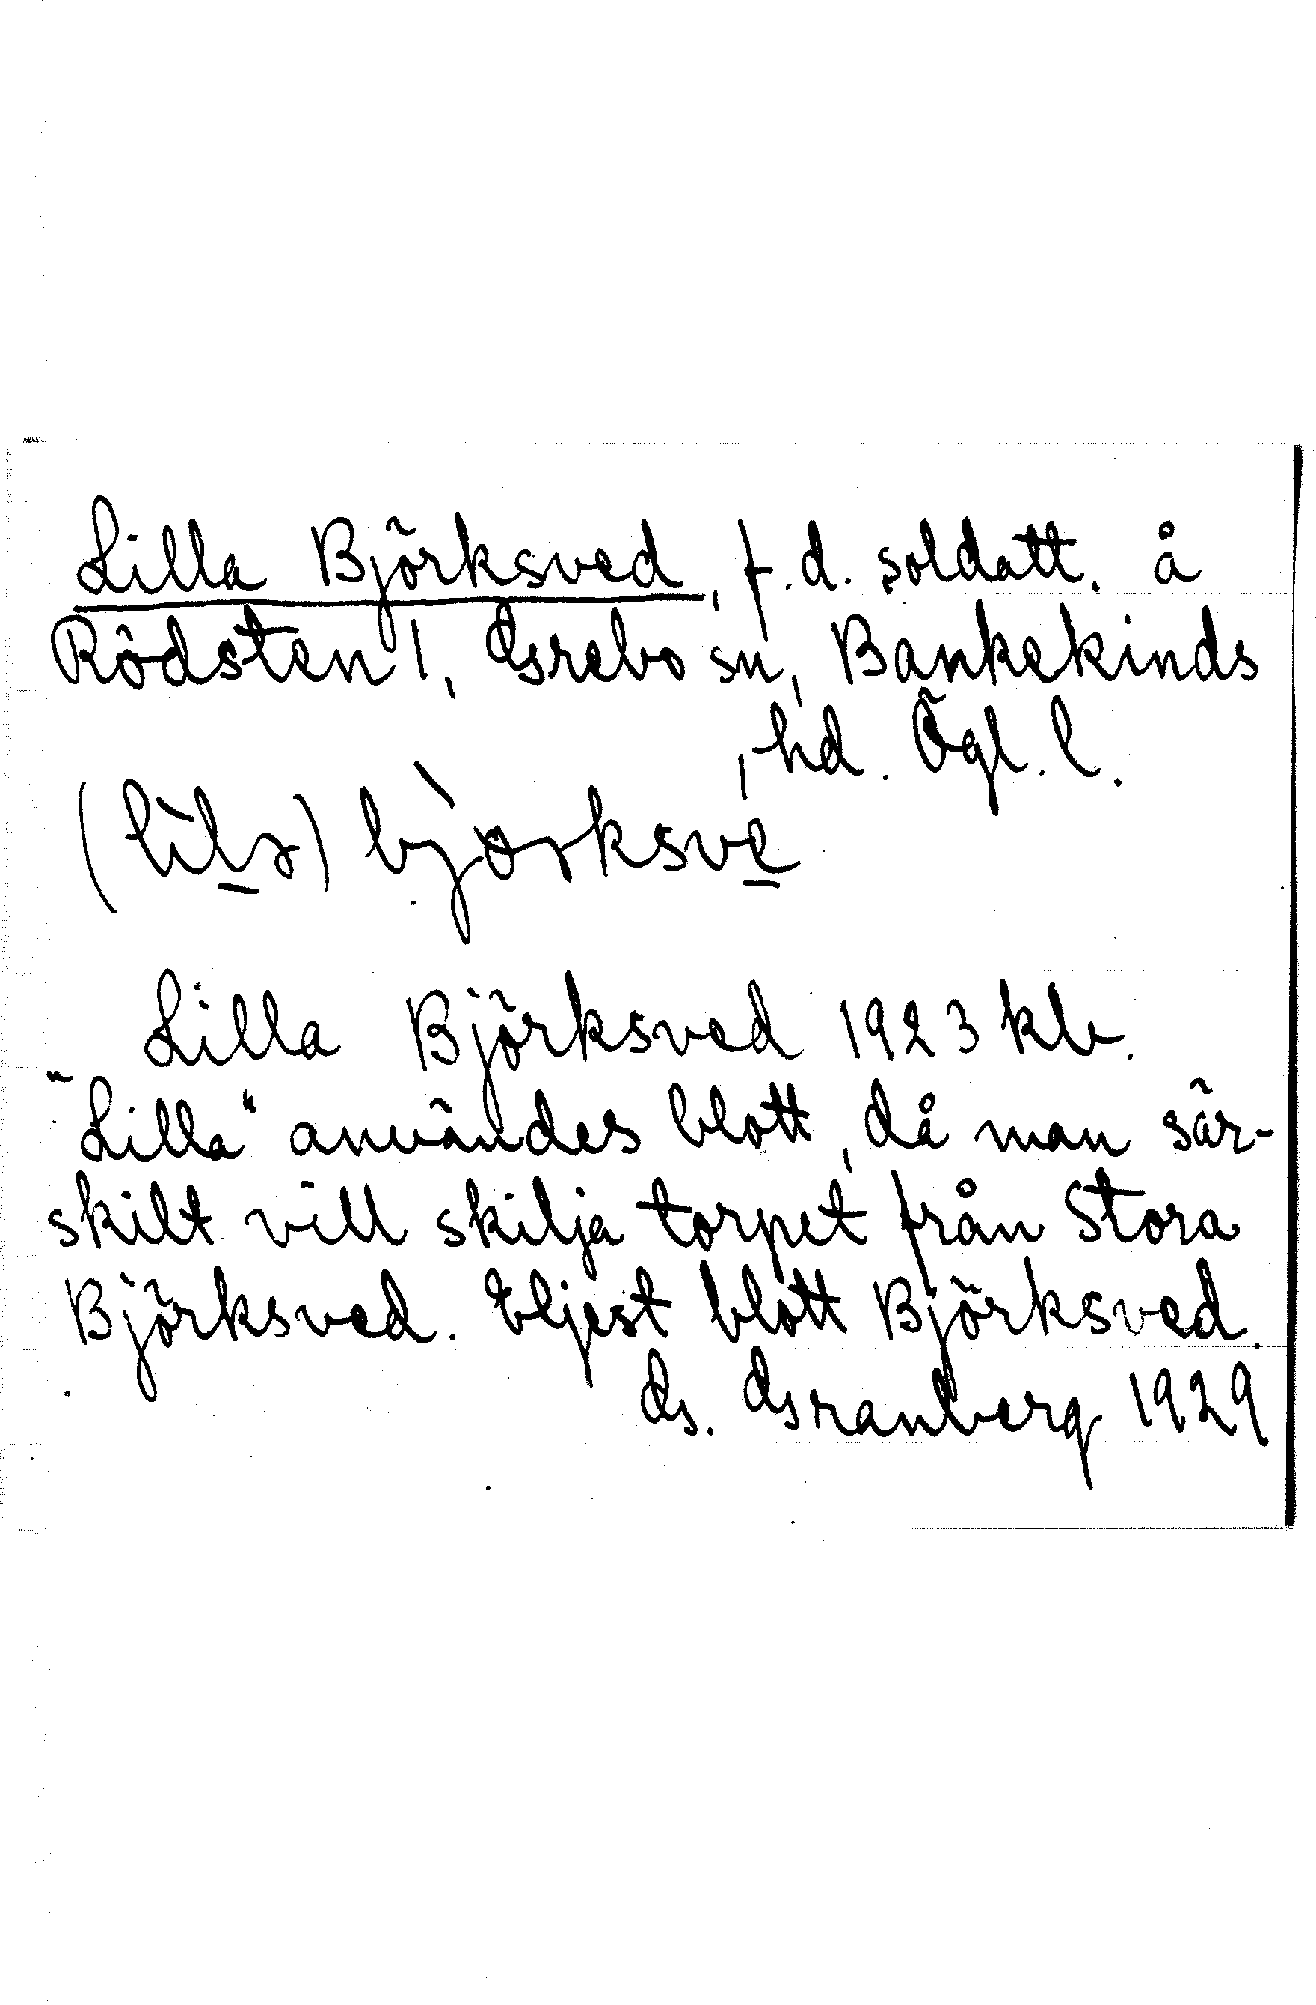 Lilla Björksved, f.d. soldatt. å
Rödsten 1, Grebo sn, Bankekinds
hd. Ögl. l.
Lilla Björksved 1923 kb.
"Lilla" användes blott, då man sär-
skilt vill skilja torpet från Stora
Björksved. Eljest blott Björksved.
G. Granberg 1929